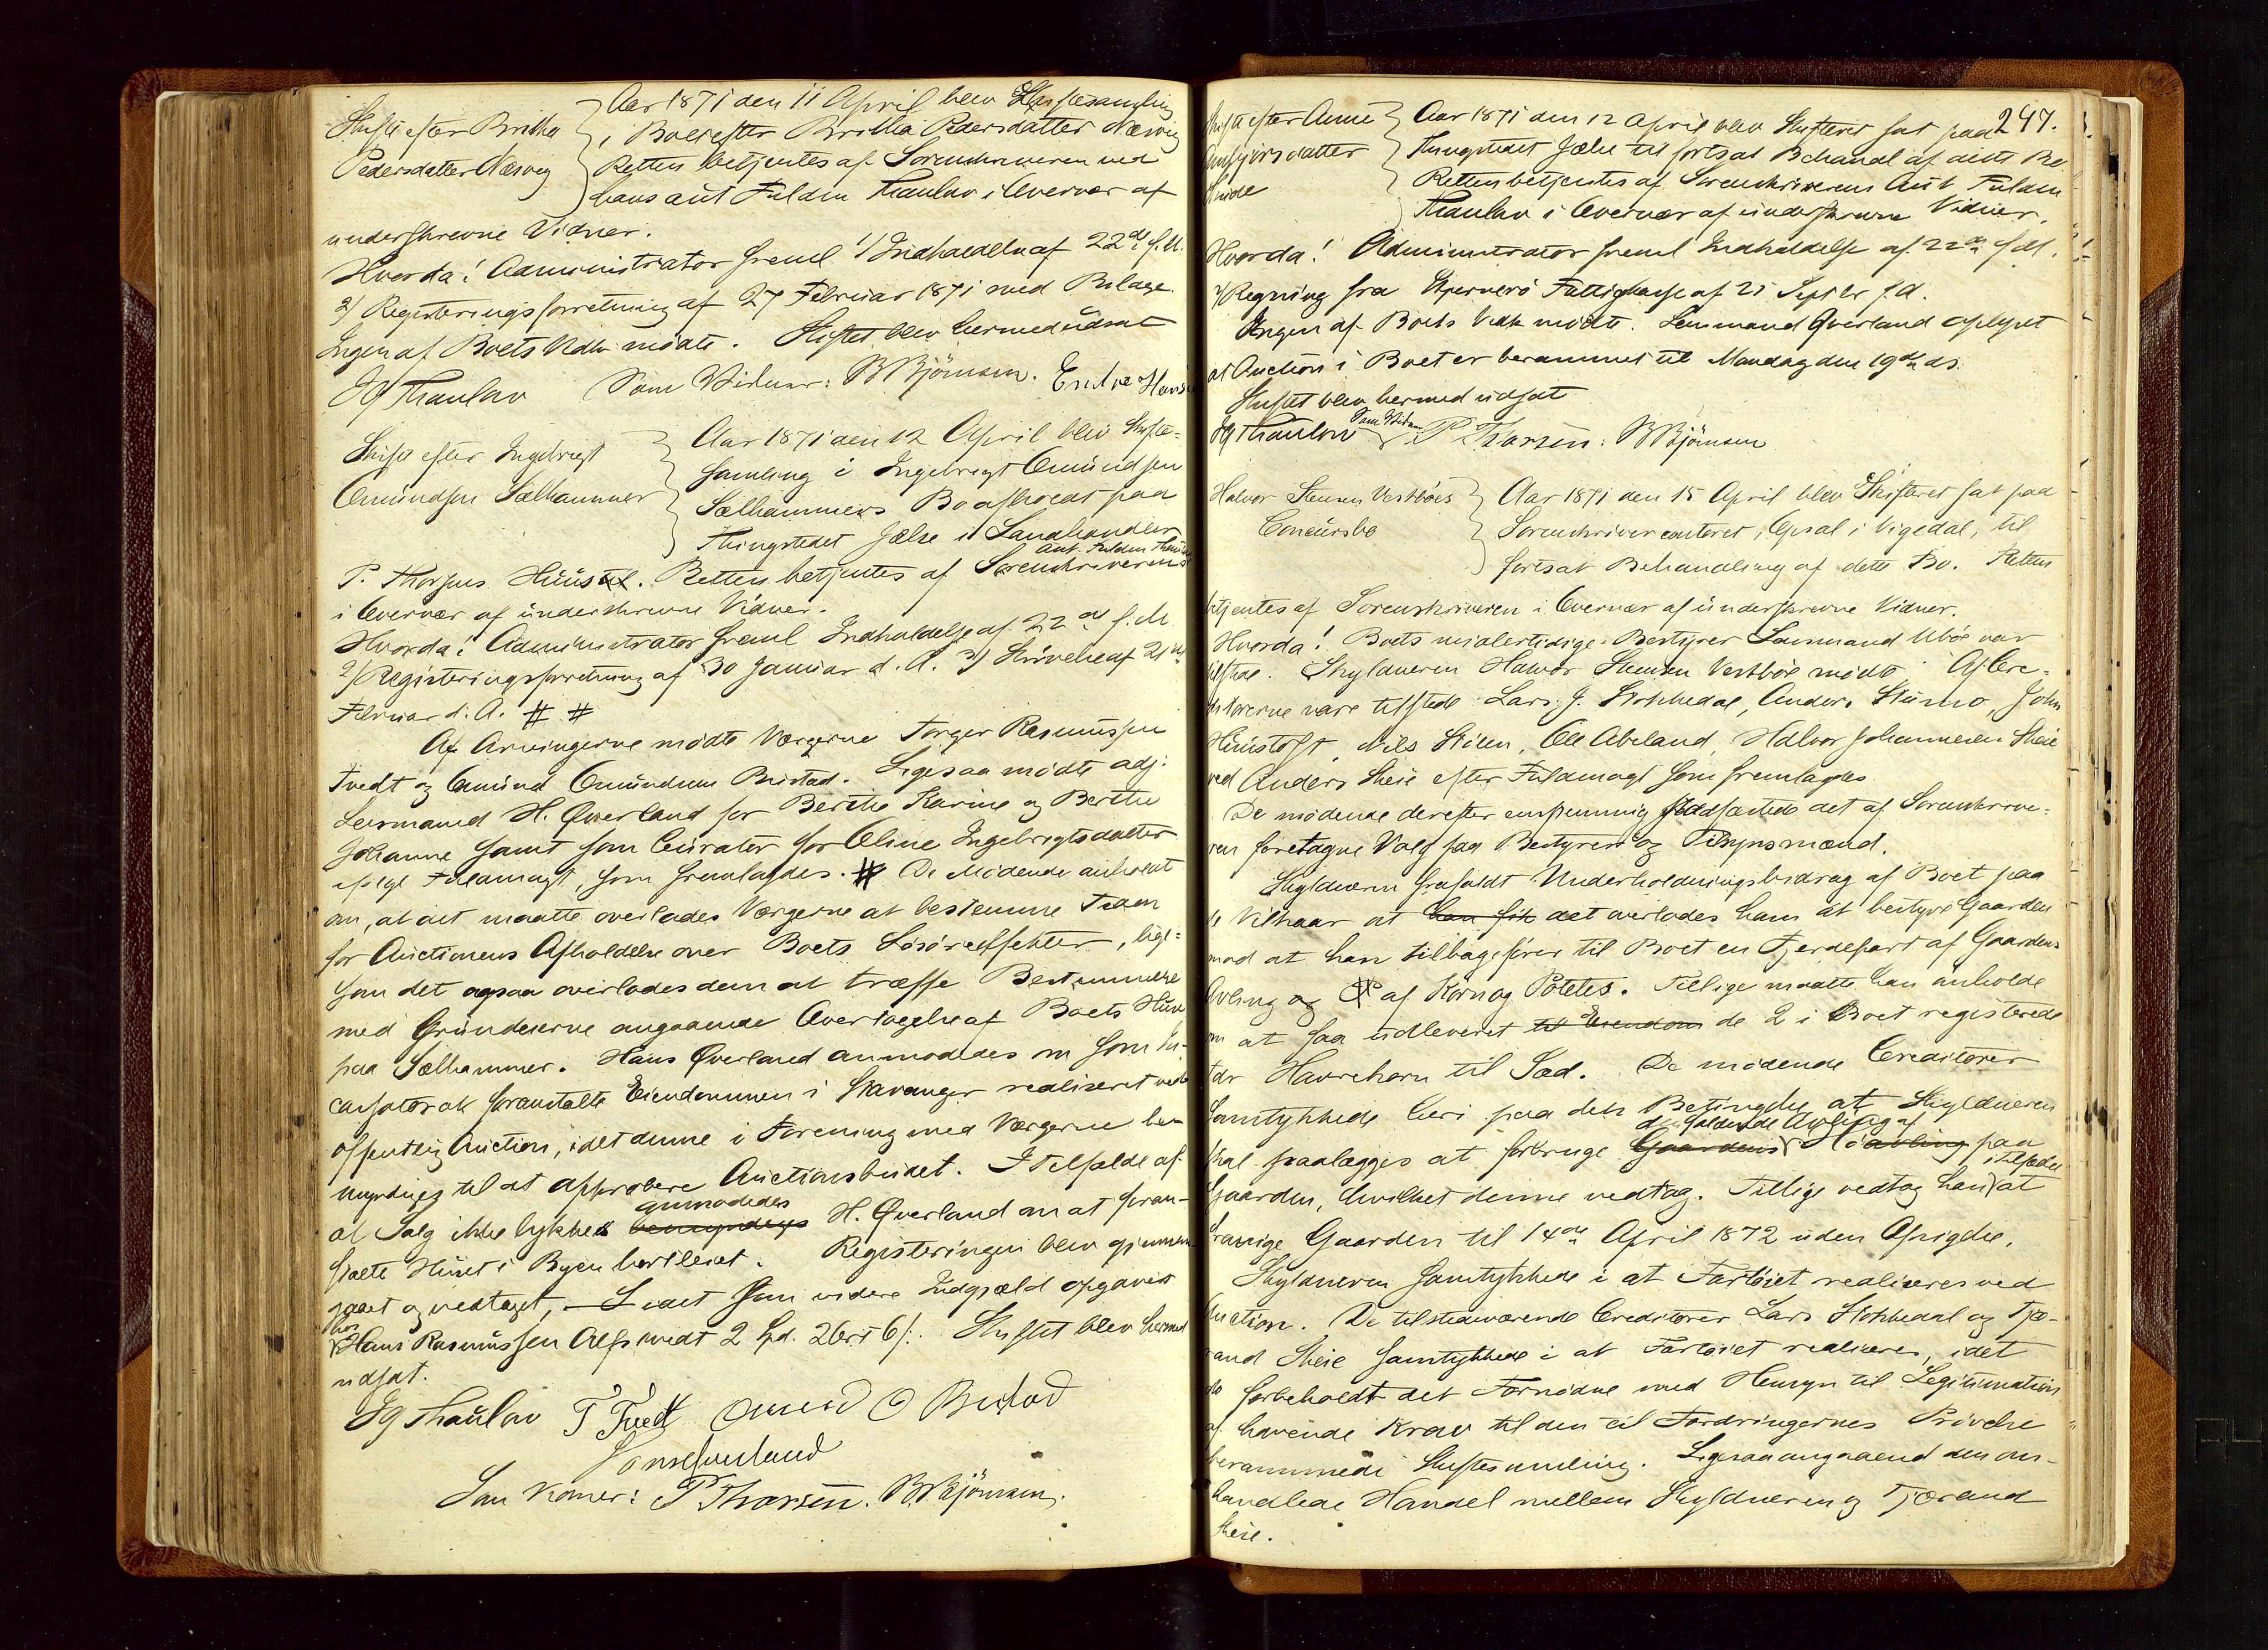 Skifte efter Brithe
Pedersdatter Næsvig
Aar 1871 den 11 April blev Skiftesamling
i Boet efter Britha Pedersdatter Næsvig
Retten betjentes af Sorenskriveren ved
hans aut Fuldm Thaulow i Overvær af
underskrevne Vidner.
Hvorda! Administrator freml 1/ Indkaldelse af 22de f. M.
2/ Registeringsforretning af 27 Februar 1871 med Bilage.
Ingen af Boets Vedk mødte. Skiftet blev hermed udsat
Thaulow Som Vidner: B Bjørnsen. Endre
Skifte efter Ingebrigt
Omundsen Sælhammer
Aar 1871 den 12 April blev Skifte-
samling i Ingebrigt Omundsen
Sælhammers Bo afholdt paa
Thingstedet Jælse i Landhandler
P. Thorsens Huus. Retten betjentes af Sorenskriverens aut. Fuldm
i Overvær af underskrevne Vidner.
Hvorda! Administrator freml Indkaldelse af 22de f. M
2/ Registeringsforretning af 30 Januar d. A. 3/ Skrivelse af 21
Februar d. A. # #
Af Arvingerne mødte Værgerne Torger Rasmussen
Tvedt og Omund Omundsen Bustad. Ligesaa mødte adj.
Lensmand H. Qverland for Berthe Karine og Berthe
Johanne samt som Curator for Oline Ingebrigtsdatter
ifølge Fuldmagt, som fremlagdes. # De Mødende anholdt
om, at det maatte overlades Værgerne at bestemme Tiden
for Auctionens Afholdelse over Boets Løsøreeffekter, lige-
som det ogsaa overlodes dem at træffe Bestemmelse
med Grundeierne angaaende Overtagelse af Boets Huse
paa Sælhammer. Hans Qverland anmodedes om som
at foranstalte Eiendommen i Stavanger realiseret ved
offentlig Auction, idet denne i Forening med Værgerne be-
myndiges til at approbere Auctionsbudet. I Tilfælde af
at Salg ikke lykkes bemyndiges anmodedes H. Qverland om at foran-
stalte Huset i Byen bortleiet. Registeringen blev gjennem-
gaaet og vedtaget, — Idet som videre Indgjæld opgaves
hos Hans Rasmussen Alfsnedt 2 Spd. 2 Ort 6 s. Skiftet blev hermed
udsat.
Thaulow T Tvedt Omund O Bustad
Hans Qverland
Som Vidner: P Thorsen. B. Bjørnsen.
247.
Skifte efter Anne
Aar 1871 den 12 April blev Skifteret sat paa
Thingstedet Jælse til fortsat Behandl af dette Bo
Retten betjentes af Sorenskriverens Aut Fuldm
Thaulow i Overvær af underskrevne Vidner.
Hvorda! Administrator freml Indkaldelse af 22de f M.
2/ Regning fra Skjernerø Fattigkasse af 21 Septbr f. A.
Ingen af Boets Vedk mødte. Lensmand Qverland oplyset
at Auction i Boet er berammet til Mandag den 19de ds.
Skiftet blev hermed udsat
Thaulow Som Vidner P Thorsen: B Bjørnsen
Halvor Stensen Vestbøes
Concursbo
Aar 1871 den 15 April blev Skifteret sat paa
Sorenskrivercontoret, Opsal i Vigedal, til
fortsat Behandling af dette Bo. Retten
betjentes af Sorenskriveren i Overvær af underskrevne Vidner.
Hvorda! Boets midlertidige Bestyrer Lensmand Ubøe var
tilstede. Skyldneren Halvor Stensen Vestbøe mødte. Af Cre-
ditorerne vare tilstede Lars J. Stokkedal, Anders Stumo, John
Huustoft, Nils Steen, Ole Abeland, Halvor Johannesen Skeie
ved Anders Skeie efter Fuldmagt som fremlagdes.
De mødende derefter enstemmig stadfæstede det af Sorenskrive-
ren foretagne Valg paa Bestyrer og Tilsynsmænd.
Skyldneren frafaldt Underholdningsbidrag af Boet paa
de Vilkaar at han fik det overlodes ham at bestyre Gaarden
mod at han tilbagefører til Boet en Fjerdepart af Gaardens
Avling og af Korn og Poteter. Tillige maatte han anholde
om at faa udleveret til Eiendom de 2 i Boet registerede
Tdr Havrekorn til Sæd. De mødende Creditorer
samtykkede heri paa den Betingelse at Skyldneren
skal paalægges at forbruge Gaardens den faldende Avling af Høavling paa
Gaarden, hvilket denne vedtog. Tillige vedtog han i Tilfælde at
fravige Gaarden til 14de April 1872 uden Opsigelse.
Skyldneren samtykkede i at Fartøiet realiseres ved
Auction. De tilstedeværende Creditorer Lars Stokkedal og Tjø-
rand Skeie samtykkede i at Fartøiet realiseres, idet
de forbeholdt det Fornødne med Hensyn til Legitimation
af havende Krav til den til Fordringernes Prøvelse
berammede Skiftesamling. Ligesaa angaaende den om-
handlede Handel mellem Skyldneren og Tjørand
Skeie.